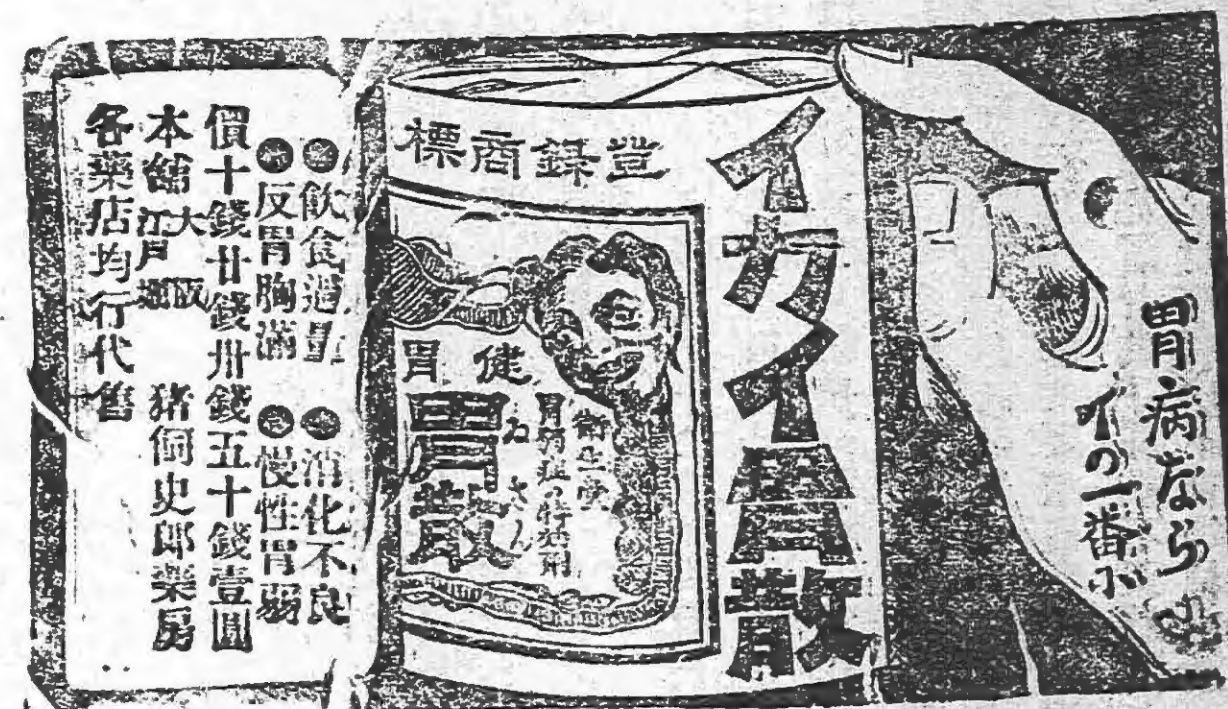 胃病なら
イの一番に
イカイ胃散
登録商標
健胃
胃散
ゐさん
飲食過量
消化不良
反胃胸満
慢性胃弱
價十錢廿錢卅錢五十錢壹圓
本舖 大阪江戸堀 猪飼史郎藥房
各藥店均行代售